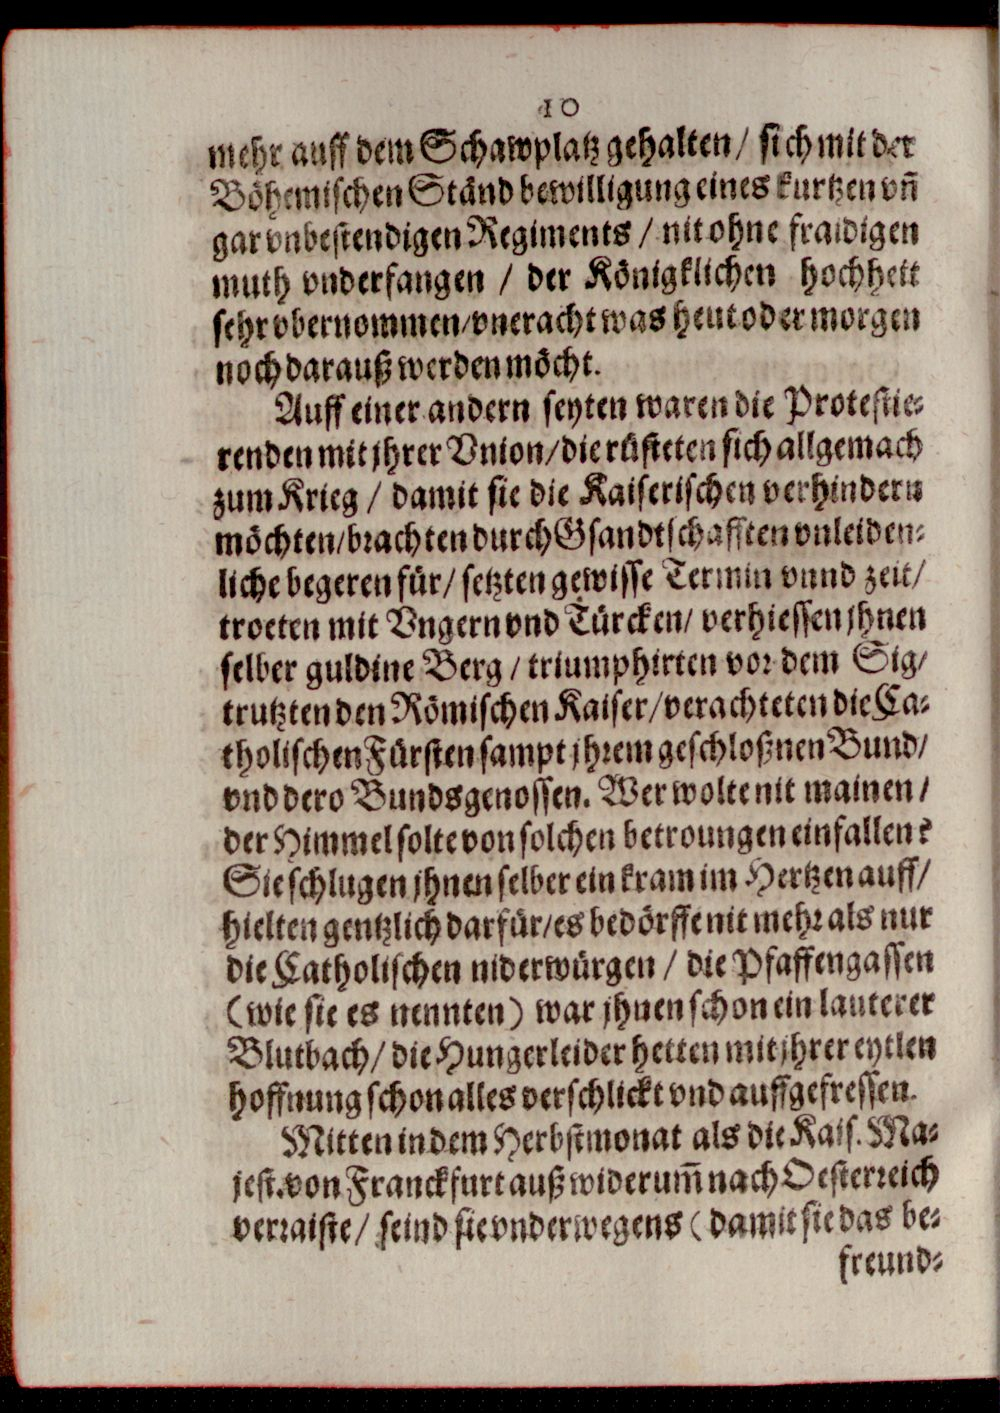 10
mehr auff dem Schawplatz gehalten/ sich mit der
Böhemischen Ständ bewilligung eines kurtzen vn̄
gar vnbestendigen Regiments / nit ohne fraidigen
muth vnderfangen / der Königklichen hochheit
sehr vbernommen/vneracht was heut oder morgen
noch darauß werden möcht.
Auff einer andern seyten waren die Protestie-
renden mit jhrer Vnion/die rüsteten sich allgemach
zum Krieg / damit sie die Kaiserischen verhindern
möchten/brachten durch Gsandtschafften vnleiden-
liche begeren für/ setzten gewisse Termin vnnd zeit/
troeten mit Vngern vnd Türcken/ verhiessen jhnen
selber guldine Berg / triumphirten vor dem Sig/
trutzten den Römischen Kaiser/verachteten die Ca-
tholischen Fürsten sampt jhrem geschloßnen Bund/
vnd dero Bundsgenossen. Wer wolte nit mainen/
der Himmel solte von solchen betroungen einfallen?
Sie schlugen jhnen selber ein kram im Hertzen auff/
hielten gentzlich darfür/es bedörffe nit mehr als nur
die Catholischen niderwürgen / die Pfaffengassen
(wie sie es nennten) war jhnen schon ein lauterer
Blutbach/ die Hungerleider hetten mit jhrer eytlen
hoffnung schon alles verschlickt vnd auffgefressen.
Mitten in dem Herbstmonat als die Kais. Ma-
jest. von Franckfurt auß widerum̄ nach Oesterreich
verraiste/ seind sie vnderwegens (damit sie das be-
freund-